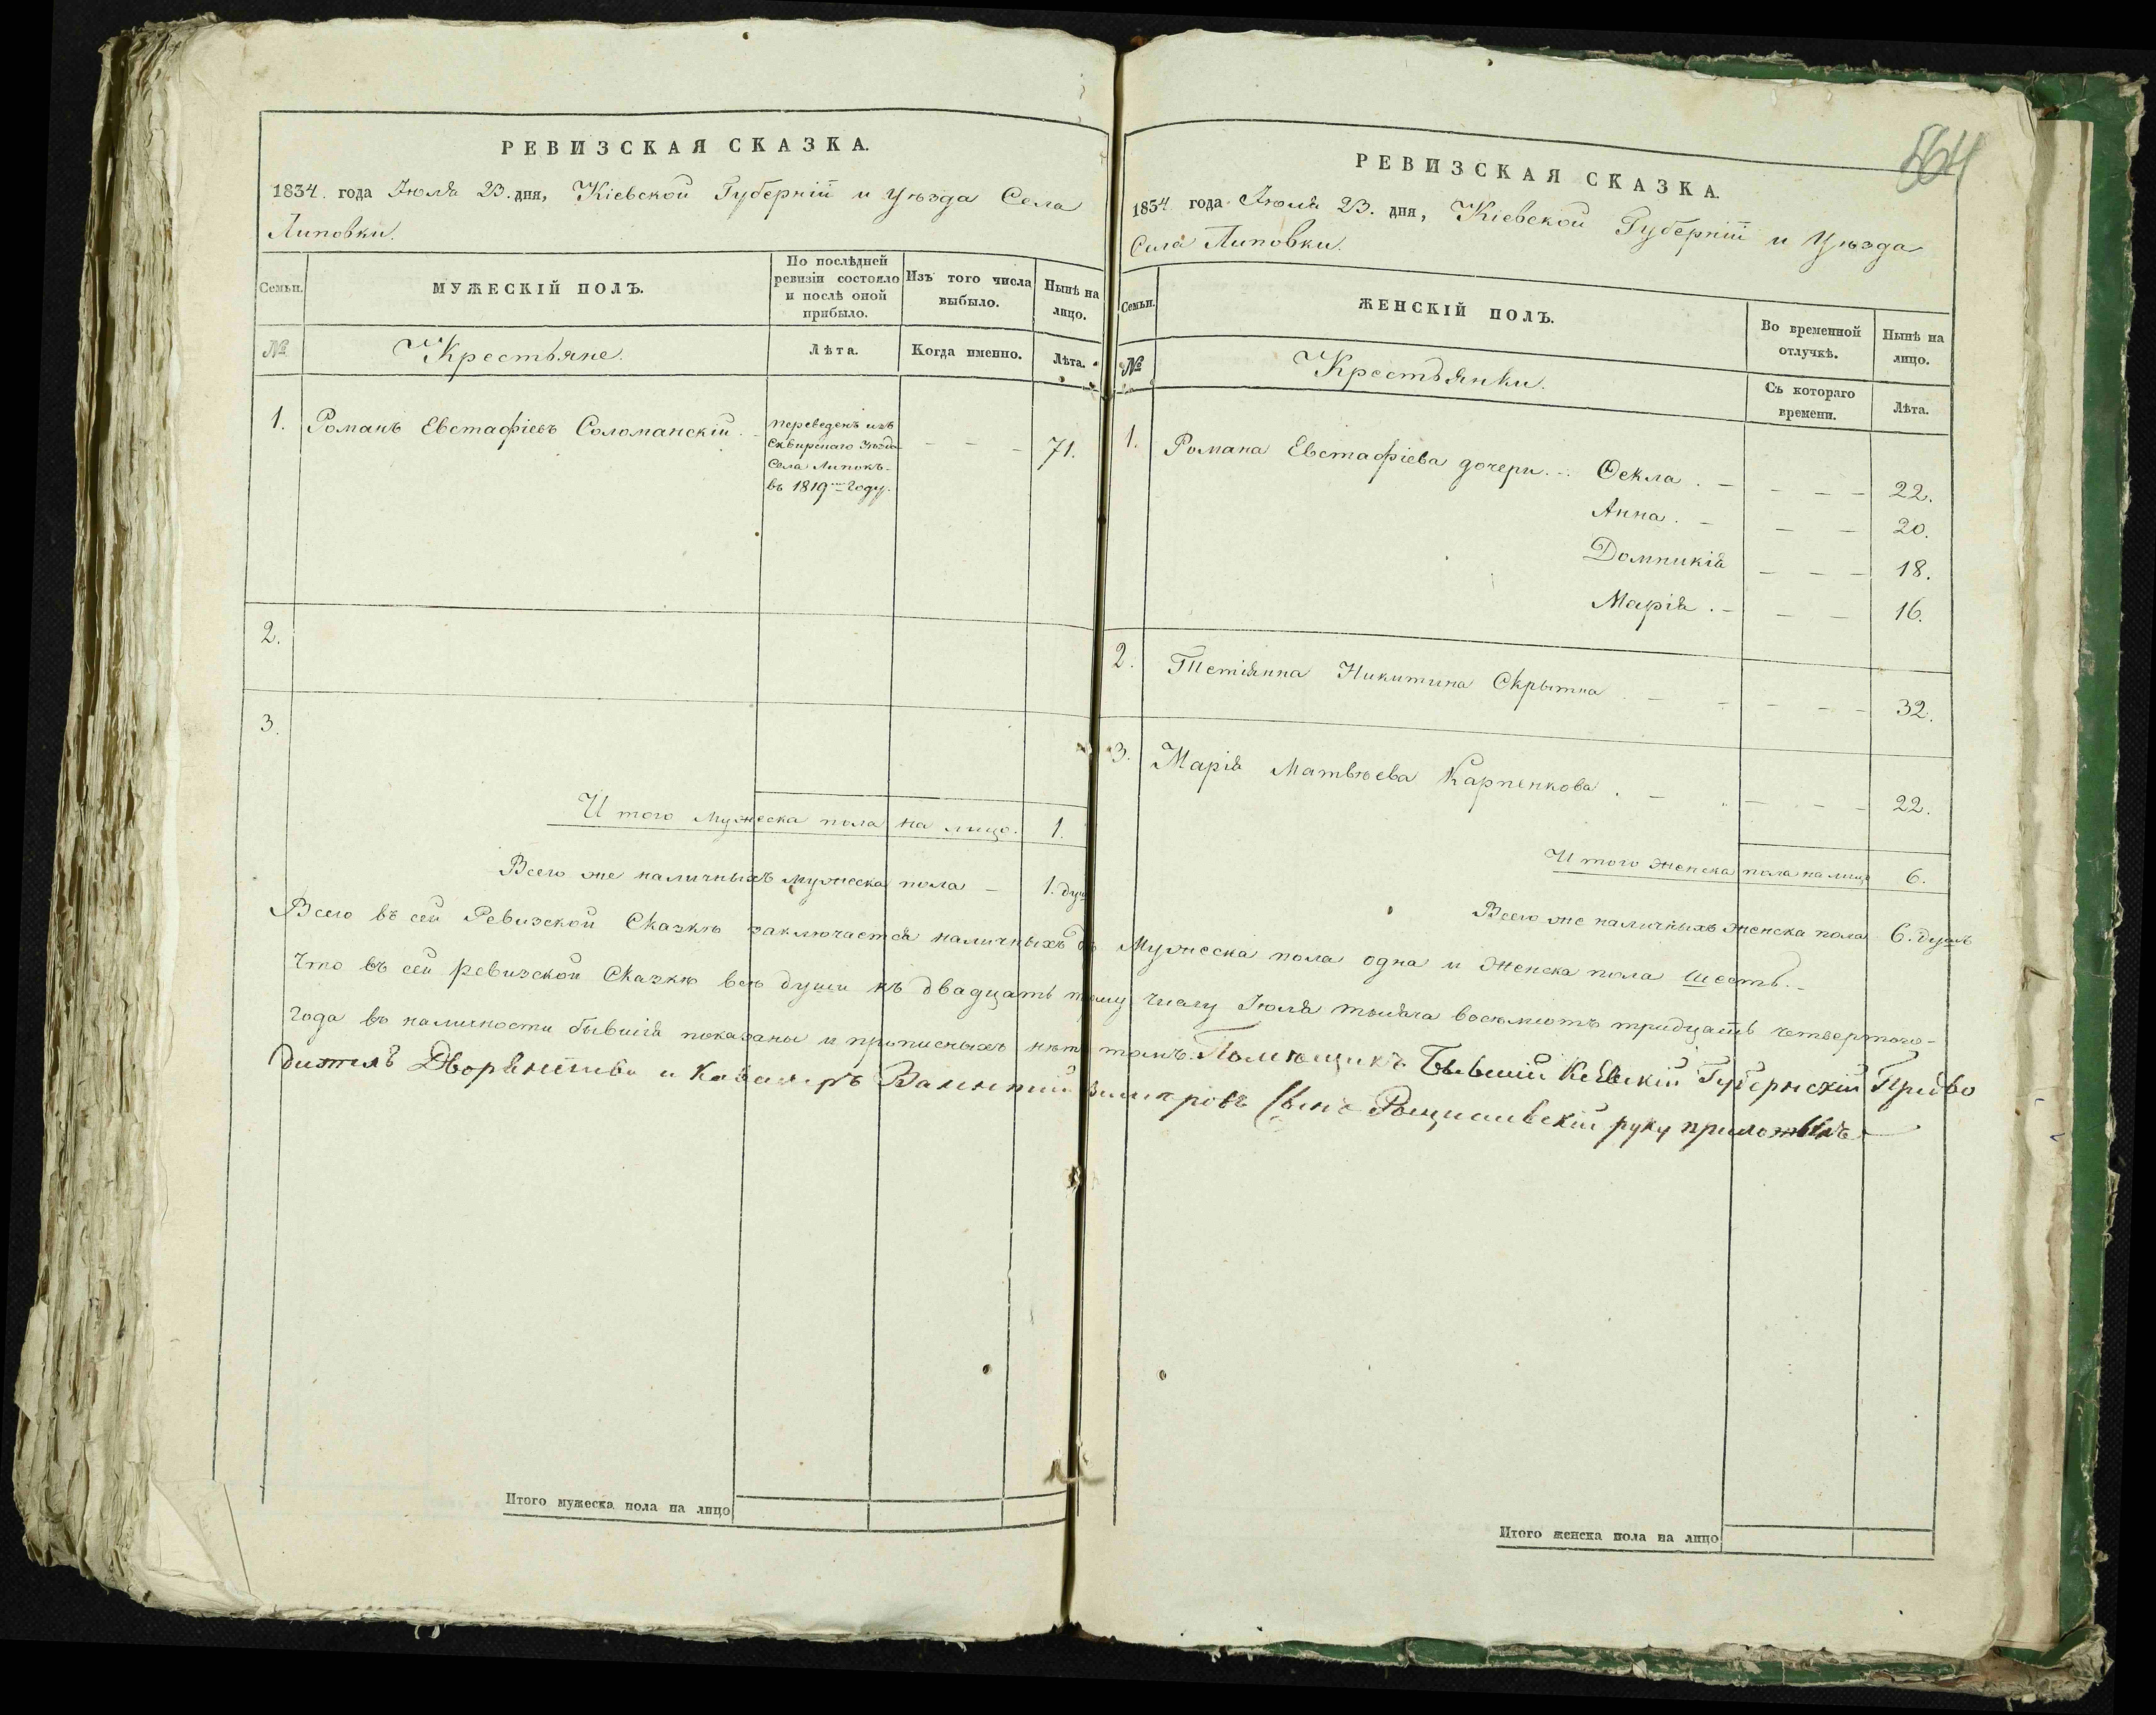 РЕВИЗСКАЯ СКАЗКА.
1834. года Июля 23. дня, Кіевской Губерніи и Уѣзда Села
Липовки.
Семьи.
МУЖЕСКІЙ ПОЛЪ.
По послѣдней
ревизіи состояло
и послѣ оной
прибыло.
Изъ того числа
выбыло.
Нынѣ на
лицо.
№
Крестьяне.
Лѣта.
Когда именно.
Лѣта.
1. Романъ Евстафіевъ Соломанскій.
переведенъ изъ
Сквирскаго Уѣзда
Села Липокъ
въ 1819 году.
71.
2.
3.
И того Мужеска пола на лицо. 1.
Всего же наличныхъ мужеска пола – 1. душ
Итого мужеска пола на лицо
564
РЕВИЗСКАЯ СКАЗКА.
1834 года Июля 23. дня, Кіевской Губерніи и Уѣзда
Села Липовки.
Семьи.
ЖЕНСКІЙ ПОЛЪ.
Во временной
отлучкѣ.
Нынѣ на
лицо.
№
Крестьянки.
Съ котораго
времени.
Лѣта.
1. Романа Евстафіева дочери. Ѳекла. 22.
Анна. 20.
Домникія 18.
Марія. 16.
2. Тетіянна Никитина Скрытна 32.
3. Марія Матвѣева Карпенкова. 22.
И того женска пола на лицо 6.
Всего же наличныхъ женска пола 6. душъ
Всего въ сей Ревизской Сказкѣ заключается наличныхъ Мужеска пола одна и Женска пола шесть.
Что въ сей ревизской Сказкѣ всѣ души къ двадцать числу Июля тысяча восемьсотъ тридцать четвертого
года въ наличности бывшія показаны и прописныхъ нѣтъ томъ. Помѣщикъ Бывшій Кіевскій Губернскій Придво
дитель Дворянства и Кавалеръ сынъ руку приложилъ
Итого женска пола на лицо